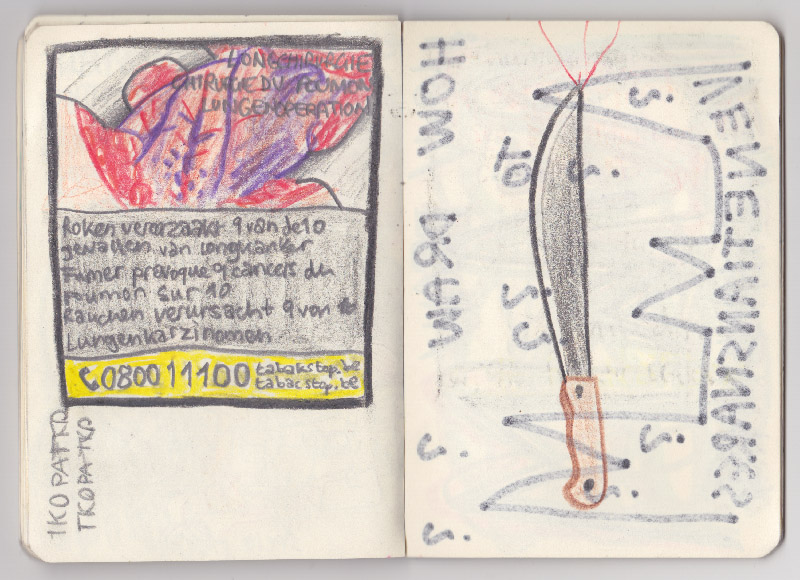 LONGCHIRURGIE
CHIRURGIE DU POUMON
LUNGENOPERATION
Roken veroorzaakt 9 van de 10
gevallen van longkanker
Fumer provoque 9 cancers du
poumon sur 10
Rauchen verursacht 9 von
Lungenkarzinomen.
080011100 tabakstop.be
tabacstop.be
HOW
TO
VENETIAN SNARES